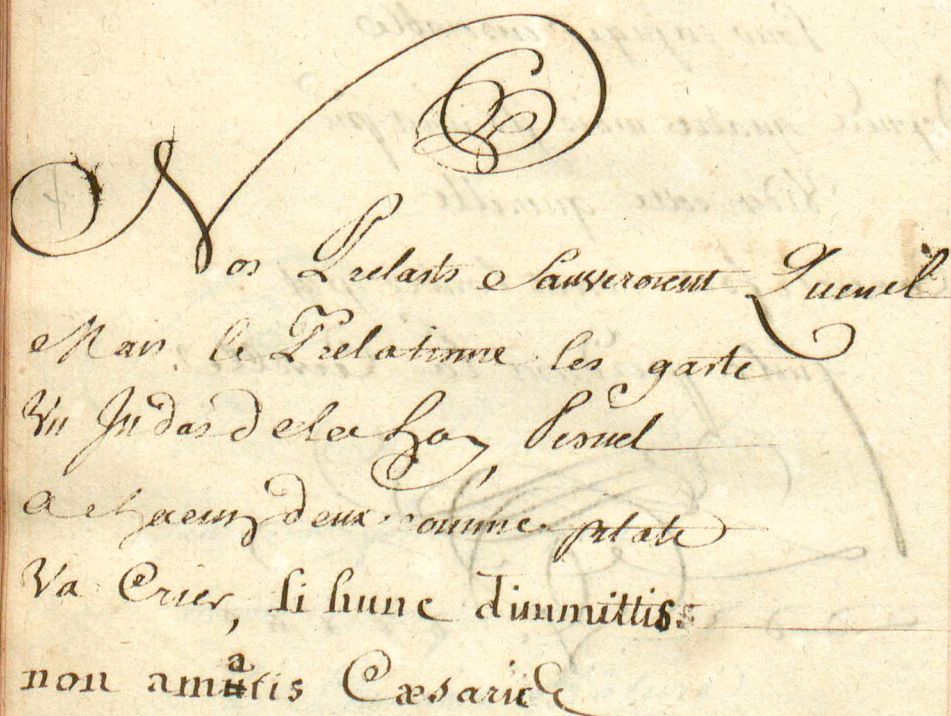 Nos Prelasts Sauveroient Quenel
Mais le Prelatisme les gaste
Un Judas de la Foy
a chacun deux comme pilate
Va Crier, si hunc dimmittiss
non amatis Cæsarie